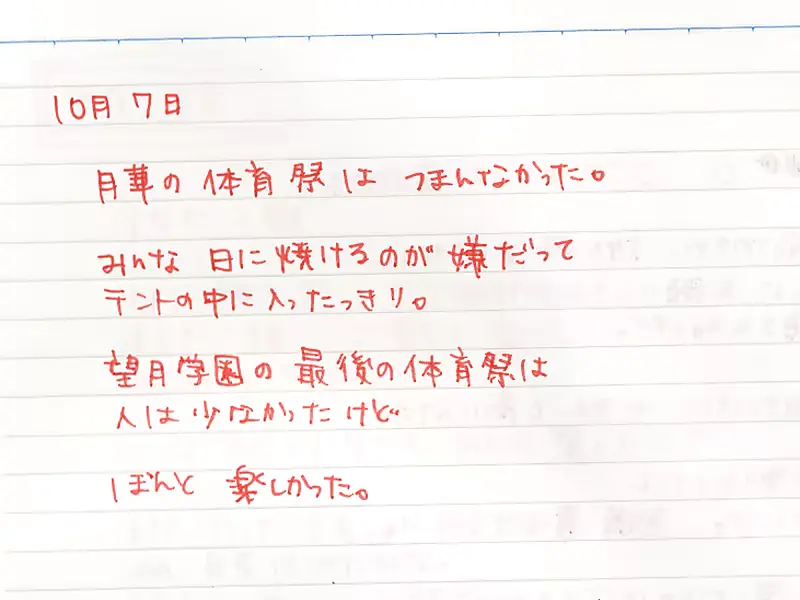 10月7日
月華の体育祭はつまんなかった。
みんな日に焼けるのが嫌だって
テントの中に入ったっきり。
望月学園の最後の体育祭は
人は少なかったけど
ほんと楽しかった。